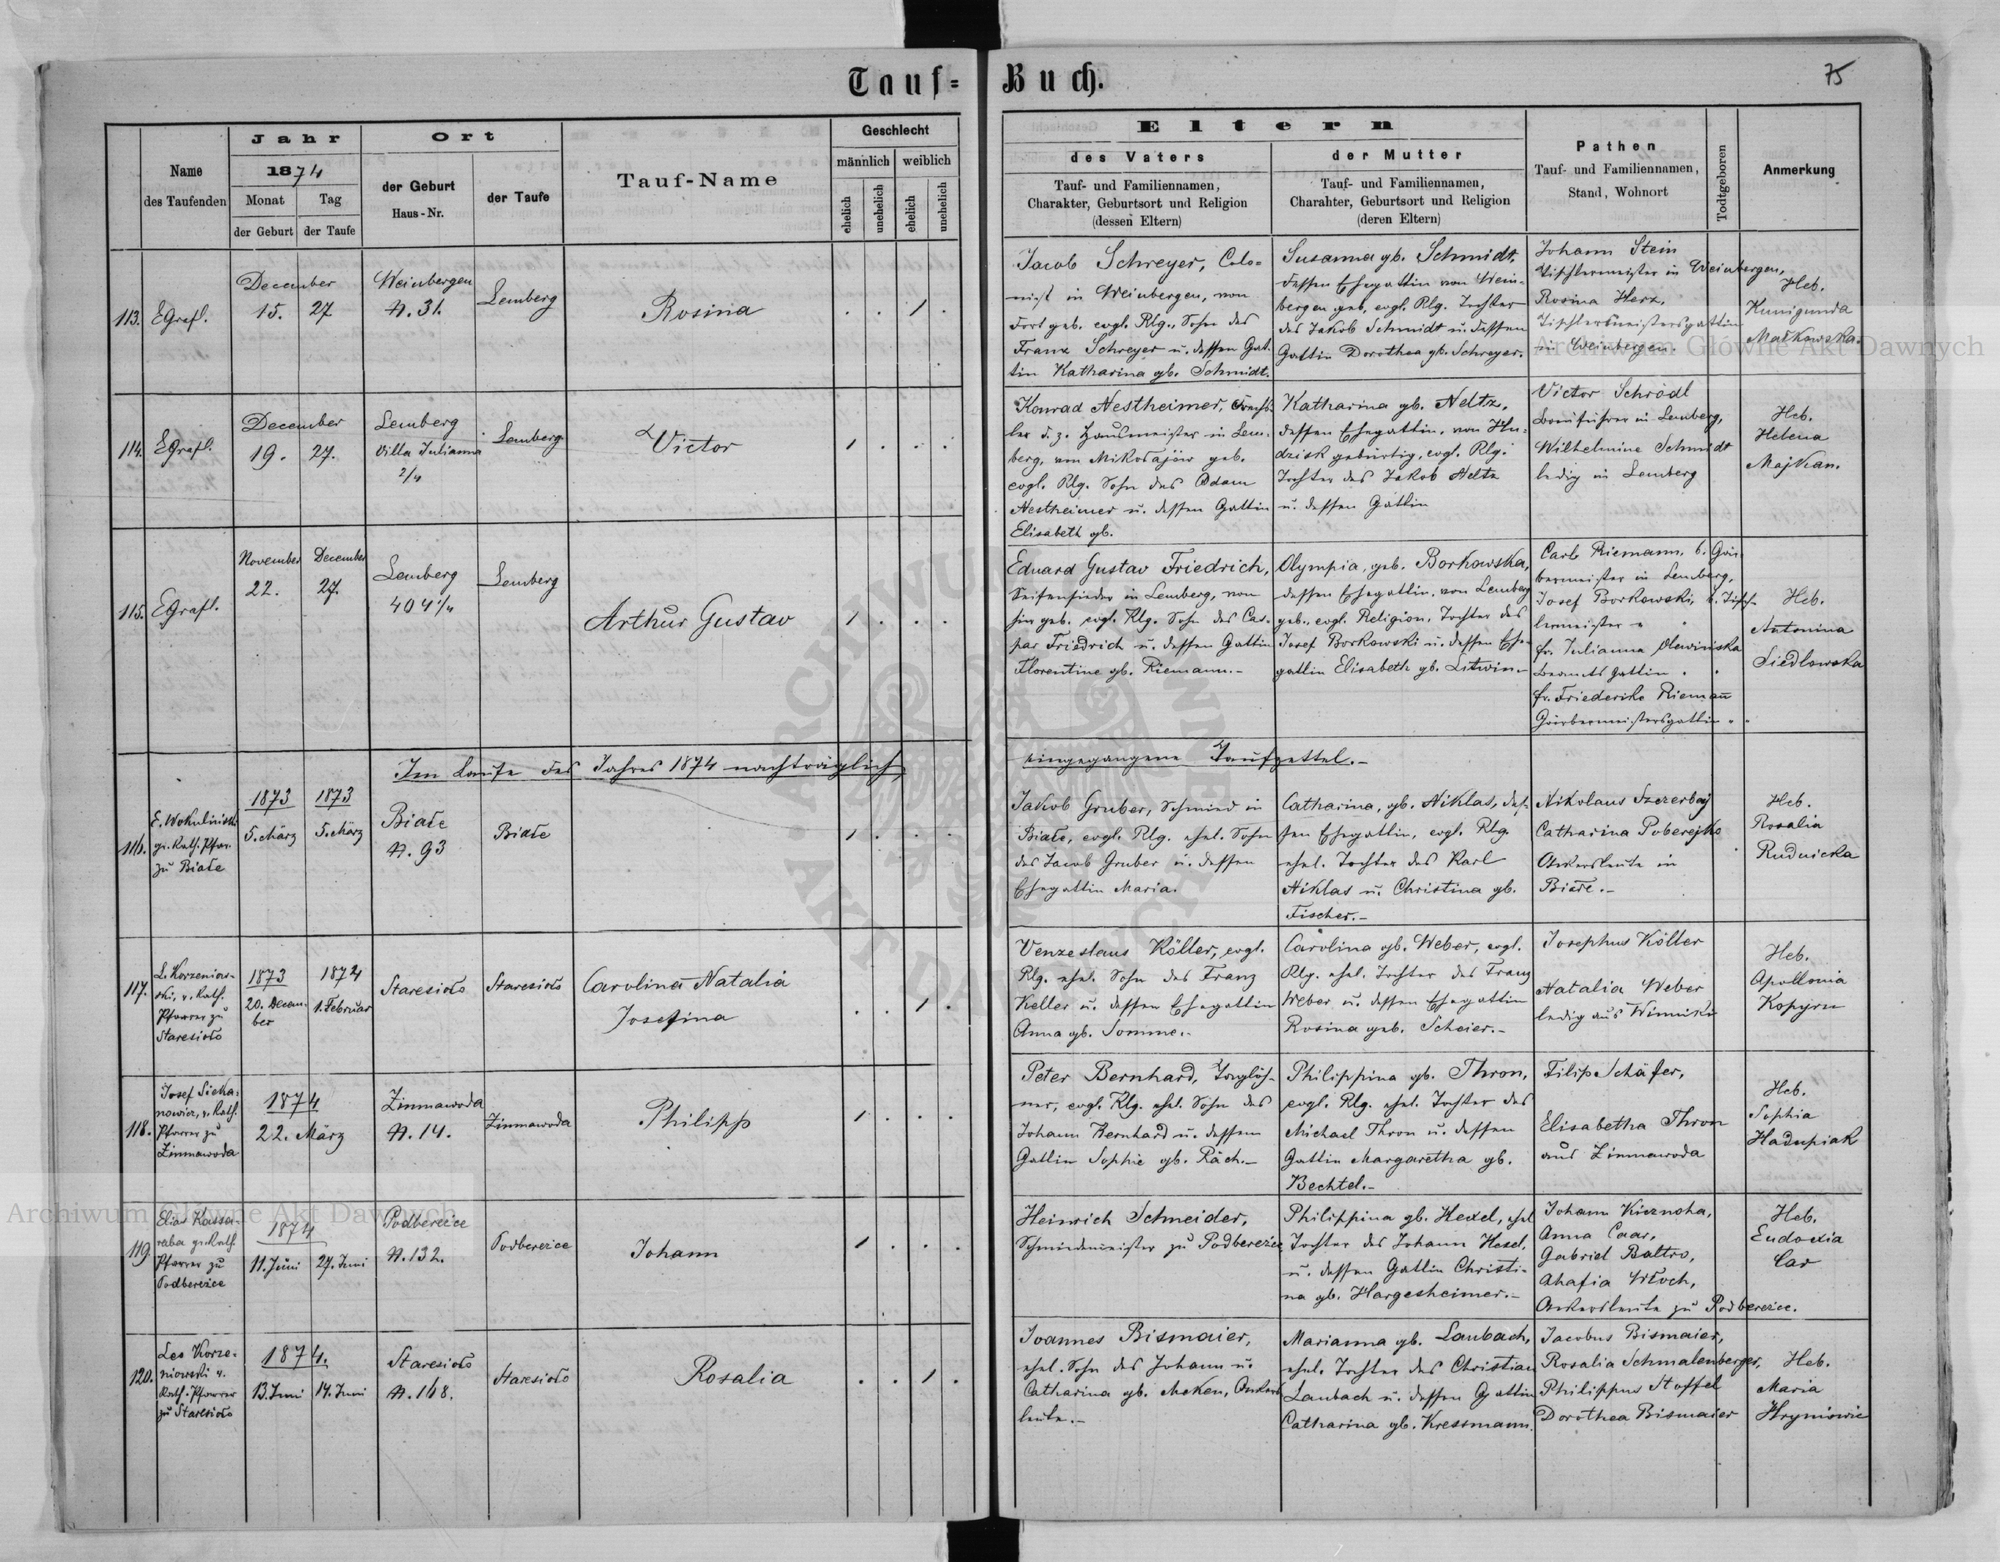 Tauf= Buch.
75
Name
des Taufenden
Jahr
1874
Monat
Tag
der Geburt
der Taufe
Ort
der Geburt
Haus-Nr.
der Taufe
Tauf-Name
Geschlecht
männlich
weiblich
ehelich
unehelich
ehelich
unehelich
Eltern
des Vaters
Tauf- und Familiennamen,
Charakter, Geburtsort und Religion
(dessen Eltern)
der Mutter
Tauf- und Familiennamen,
Charahter, Geburtsort und Religion
(deren Eltern)
Pathen
Tauf- und Familiennamen,
Stand, Wohnort
Todtgeboren
Anmerkung
113.
EGrafl.
December
15. 27
Weinbergen
N. 31.
Lemberg
Rosina
. . 1 .
Jacob Schreyer, Colo=
nist in Weinbergen, von
dort geb. evgl. Rlg., Sohn des
Franz Schreyer u. dessen Gat.
tin Katharina gb. Schmidt.
Susanna gb. Schmidt,
dessen Ehegattin von Wein-
bergen geb. evgl. Rlg. Tochter
des Jakob Schmidt u. dessen
Gattin Dorothea gb. Schreyer.
Johann Stein
Tischlermeister in Weinbergen,
Rosina Herz,
Tischlermeistersgattin
in Weinbergen.
Heb.
Kunigunda
Małkowska.
114.
EGrafl.
December
19. 27.
Lemberg
Villa Julianna
2/4
Lemberg
Victor
1 . . .
Konrad Nestheimer,
ler d. z. Hausmeister in Lem.
berg, von Mikołajów geb.
evgl. Rlg. Sohn des Adam
Nestheimer u. dessen Gattin
Elisabeth gb.
Katharina gb. Neltz,
dessen Ehegattin, von Hu-
dzisk gebürtig, evgl. Rlg.
Tochter des Jakob Neltz
u. dessen Gattin
Victor Schrödl
in Lemberg,
Wilhelmine Schmidt
ledig in Lemberg
Heb.
Helena
Majkan.
115.
EGrafl.
November
22.
December
27.
Lemberg
404 1/4
Lemberg
Arthur Gustav
1 . . .
Eduard Gustav Friedrich,
Seifensieder in Lemberg, von
hier geb. evgl. Rlg. Sohn des Cas-
par Friedrich u. dessen Gattin
Florentine gb. Riemann.-
Olympia, geb. Borkowska,
dessen Ehegattin, von Lemberg
geb. evgl. Religion, Tochter des
Josef Borkowski u. dessen Ehe-
gattin Elisabeth gb. Litwin.-
Carl Riemann, b. Gär-
bermeister in Lemberg,
Josef Borkowski, b. Tisch-
lermeister "
fr. Julianna Olewińska
Beamts Gattin "
fr. Friederike Riemann
Gärbermeistersgattin " "
Heb.
Antonina
Siedlowska
Im Laufe des Jahres 1874 nachträglich
eingegangene Taufzettel.-
116.
E. Wokulinski
gr. Kath. Pfar.
zu Białe
1873
5. März
1873
5. März
Białe
N. 93
Białe
1 . . .
Jakob Gruber, Schmied in
Białe, evgl. Rlg. ehel. Sohn
des Jacob Gruber u. dessen
Ehegattin Maria.
Catharina, gb. Niklas, des-
sen Ehegattin, evgl. Rlg.
ehel. Tochter des Karl
Niklas u. Christina gb.
Fischer.-
Nikolaus Szczerbaj
Catharina Poberejko
Ackersleute in
Białe.-
Heb.
Rosalia
Rudnicka
117.
L. Korzeniow-
ski, r. Kath.
Pfarrer zu
Staresioło
1873
20. Decem-
ber
1874
1. Februar
Staresioło
Staresioło
Carolina Natalia
Josefina
. . 1 .
Venzeslaus Köller, evgl.
Rlg. ehel. Sohn des Franz
Keller u. dessen Ehegattin
Anna gb. Somme.-
Carolina gb. Weber, evgl.
Rlg. ehel. Tochter des Franz
Weber u. dessen Ehegattin
Rosina geb. Scheier.-
Josephus Köller
Natalia Weber
ledig aus Winniki
Heb.
Apollonia
Kopyrn
118.
Josef Sieka-
nowicz, r. Kath.
Pfarrer zu
Zimnawoda
1874
22. März
Zimnawoda
N. 14.
Zimnawoda
Philipp
1 . . .
Peter Bernhard, Taglöh-
ner, evgl. Rlg. ehel. Sohn des
Johann Bernhard u. dessen
Gattin Sophie gb. Räch.-
Philippina gb. Thron,
evgl. Rlg. ehel. Tochter des
Michael Thron u. dessen
Gattin Margaretha gb.
Bechtel.-
Filip Schäfer,
Elisabetha Thron
aus Zimnawoda
Heb.
Sophia
Hadupiak
119
Elias Kassa-
raba gr. Kath
Pfarrer zu
Podberezce
1874
11. Juni 24. Juni
Podberezce
N. 132.
Podberezce
Johann
1 . . .
Heinrich Schneider,
Schmiedemeister zu Podberezce
Philippina gb. Hexel, ehel
Tochter des Johann Hexel,
u. dessen Gattin Christi-
na gb. Hargesheimer.-
Johann Kiernoha,
Anna Caar,
Gabriel Baltro,
Ahafia Włoch,
Ackersleute zu Podberezce.
Heb.
Eudoxia
Car
120.
Leo Korze-
niowski r.
Kath. Pfarrer
zu Staresioło
1874.
13. Juni 14. Juni
Staresioło
N. 168.
Staresioło
Rosalia
. . 1 .
Joannes Bismaier,
ehel. Sohn des Johann u
Catharina gb. Meken, Ackers
leute.-
Marianna gb. Laubach,
ehel. Tochter des Christian
Laubach u. dessen Gattin
Catharina gb. Kressmann.
Jacobus Bismaier,
Rosalia Schmalenberger,
Philippus Stoffel
Dorothea Bismaier
Heb.
Maria
Hryniowic
Archiwum Główne Akt Dawnych
Archiwum Główne Akt Dawnych